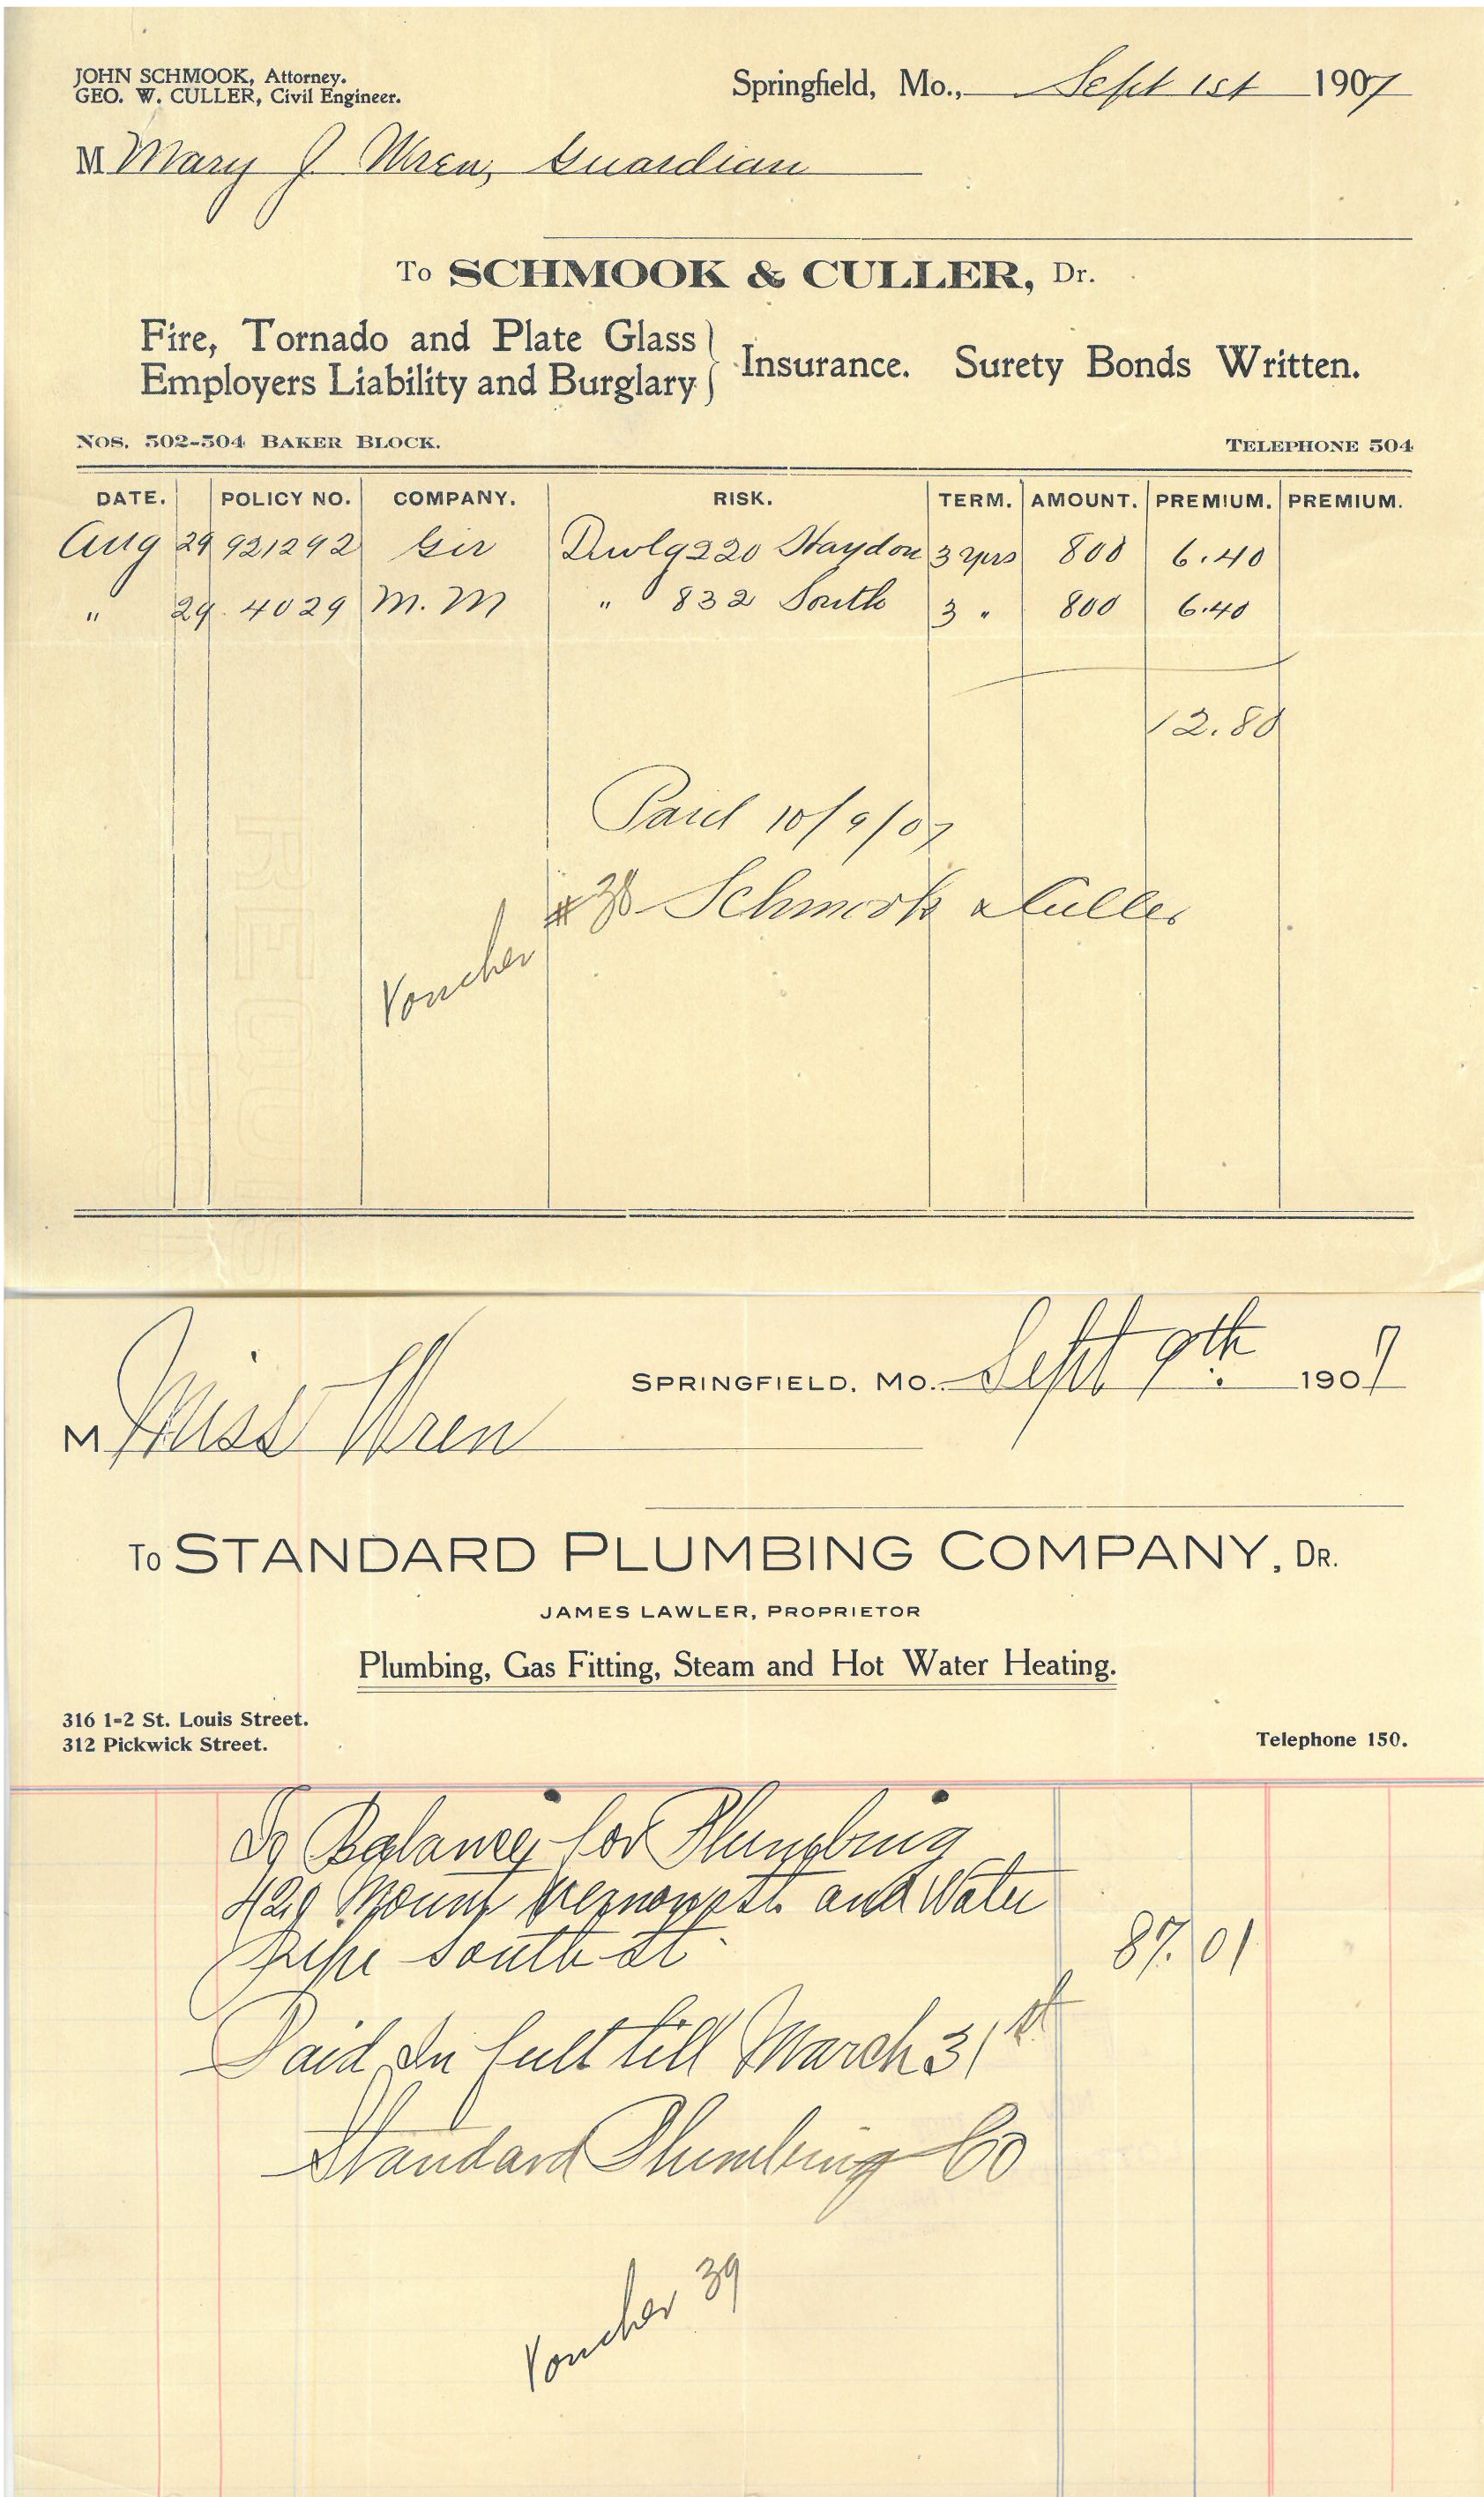 JOHN SCHMOOK, Attorney.
GEO. W. CULLER, Civil Engineer.
Springfield, Mo., Sept 1st 1907
M Mary J. Wren, Guardian
To SCHMOOK & CULLER, Dr.
Fire, Tornado and Plate Glass
Employers Liability and Burglary } Insurance. Surety Bonds Written.
Nos. 502-504 Baker Block. Telephone 504
DATE. POLICY NO. COMPANY. RISK. TERM. AMOUNT. PREMIUM. PREMIUM.
Aug 29 921292 Ger Dwlg 220 Haydon 3 yrs 800 6.40
" 29 4029 M. M " 832 South 3 " 800 6.40
12.80
Paid 10/9/07
#38 Schmook & Culler
Voucher
SPRINGFIELD, MO. Sept 9th 1907
M Miss Wren
To STANDARD PLUMBING COMPANY, DR.
JAMES LAWLER, PROPRIETOR
Plumbing, Gas Fitting, Steam and Hot Water Heating.
316 1-2 St. Louis Street.
312 Pickwick Street.
Telephone 150.
To Balance for Plumbing
429 Mount Vernon st. and Water
pipe South St 87.01
Paid In full till March 31st
Standard Plumbing Co
Voucher 39